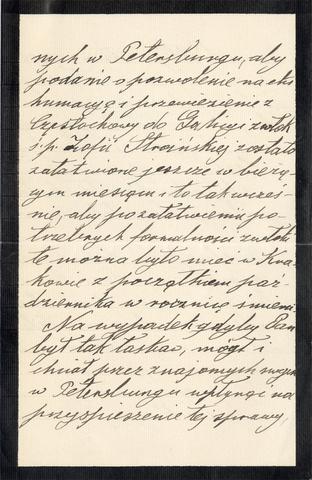 nych w Petersburgu, aby
podanie o pozwolenie na eks
humacyę i przewiezienie z
Częstochowy do Galicyi zwłok
ś. p. Zofii Strozińskiej zostało
załatwione jeszcze w bieżą-
cym miesiącu i to tak wcześ-
nie, aby po załatwieniu po-
trzebnych formalności zwłoki
te można było mieć w Kra-
kowie z początkiem paź-
dziernika w rocznicę śmierci.
Na wypadek gdyby Pan
był tak łaskaw, mógł i
chciał przez znajomych swych
w Petersburgu wpłynąć na
przyspieszenie tej sprawy,